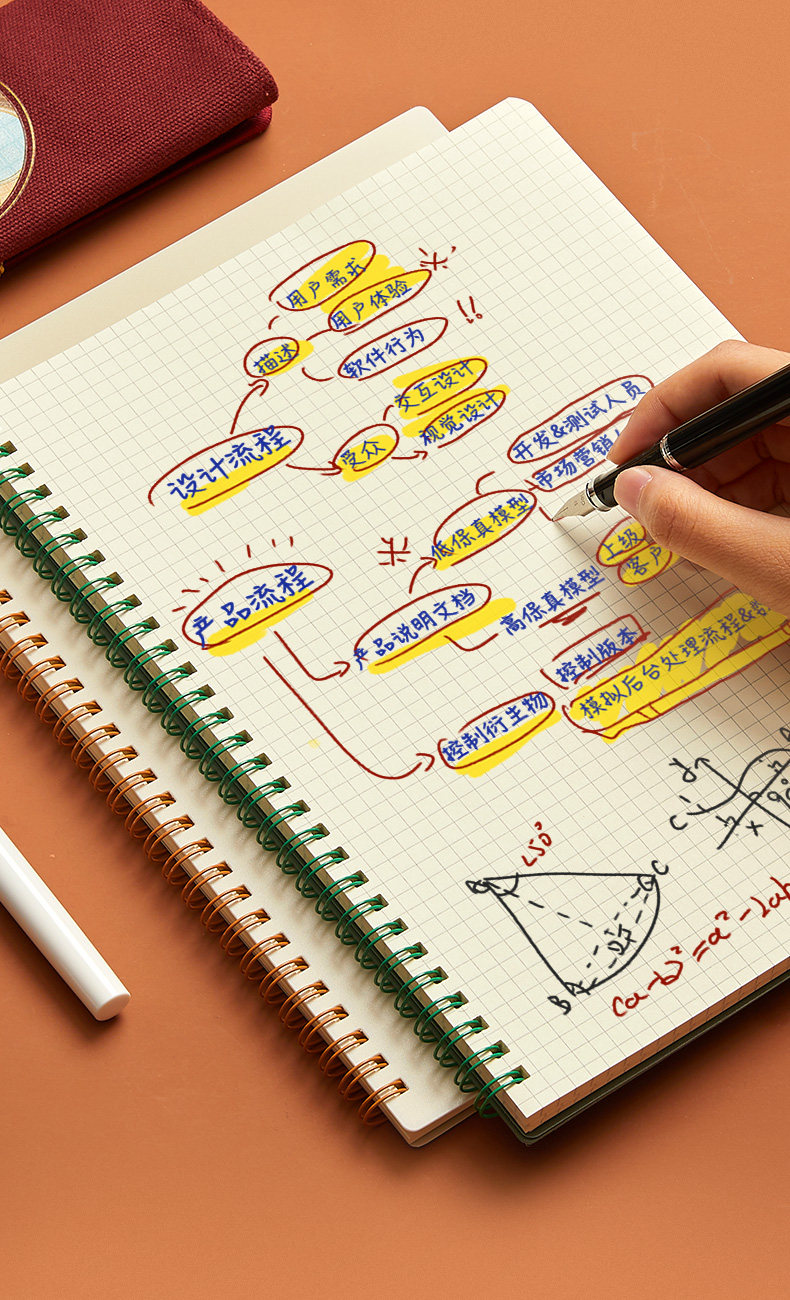 用户需求
用户体验
!!
描述
软件行为
交互设计
视觉设计
受众
设计流程
开发&测试人员
市场营销
低保真模型
上级
客户
产品流程
产品说明文档
高保真模型
控制版本
模拟后台处理流程&
控制衍生物
y
C
h
x
90°
∠50°
C
B
(a-b)²=a²-2ab